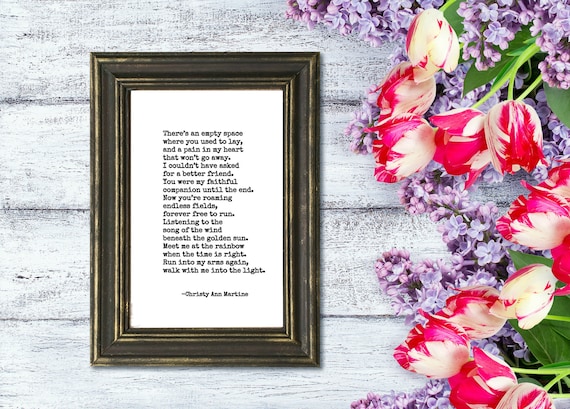 There's an empty space
where you used to lay,
and a pain in my heart
that won't go away.
I couldn't have asked
for a better friend.
You were my faithful
companion until the end.
Now you're roaming
endless fields,
forever free to run.
Listening to the
song of the wind
beneath the golden sun.
Meet me at the rainbow
when the time is right.
Run into my arms again,
walk with me into the light.
—Christy Ann Martine